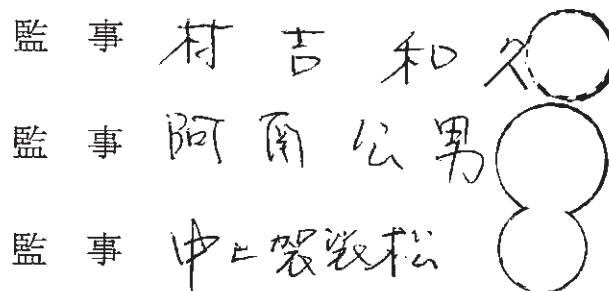 監 事 村 吉 和 久
監 事 阿 南 公 男
監 事 中上袈裟松